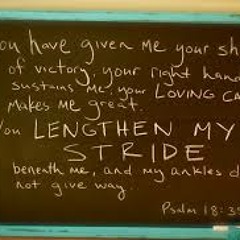 ou have given me your sh
of victory, your right hand
sustains me, your LOVING CA
makes me great.
You LENGTHEN MY
STRIDE
beneath me, and my ankles d
not give way.
Psalm 18:35